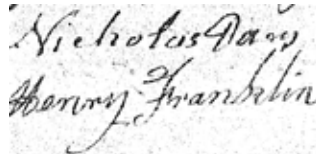 Nicholas Day
Henry Franklin